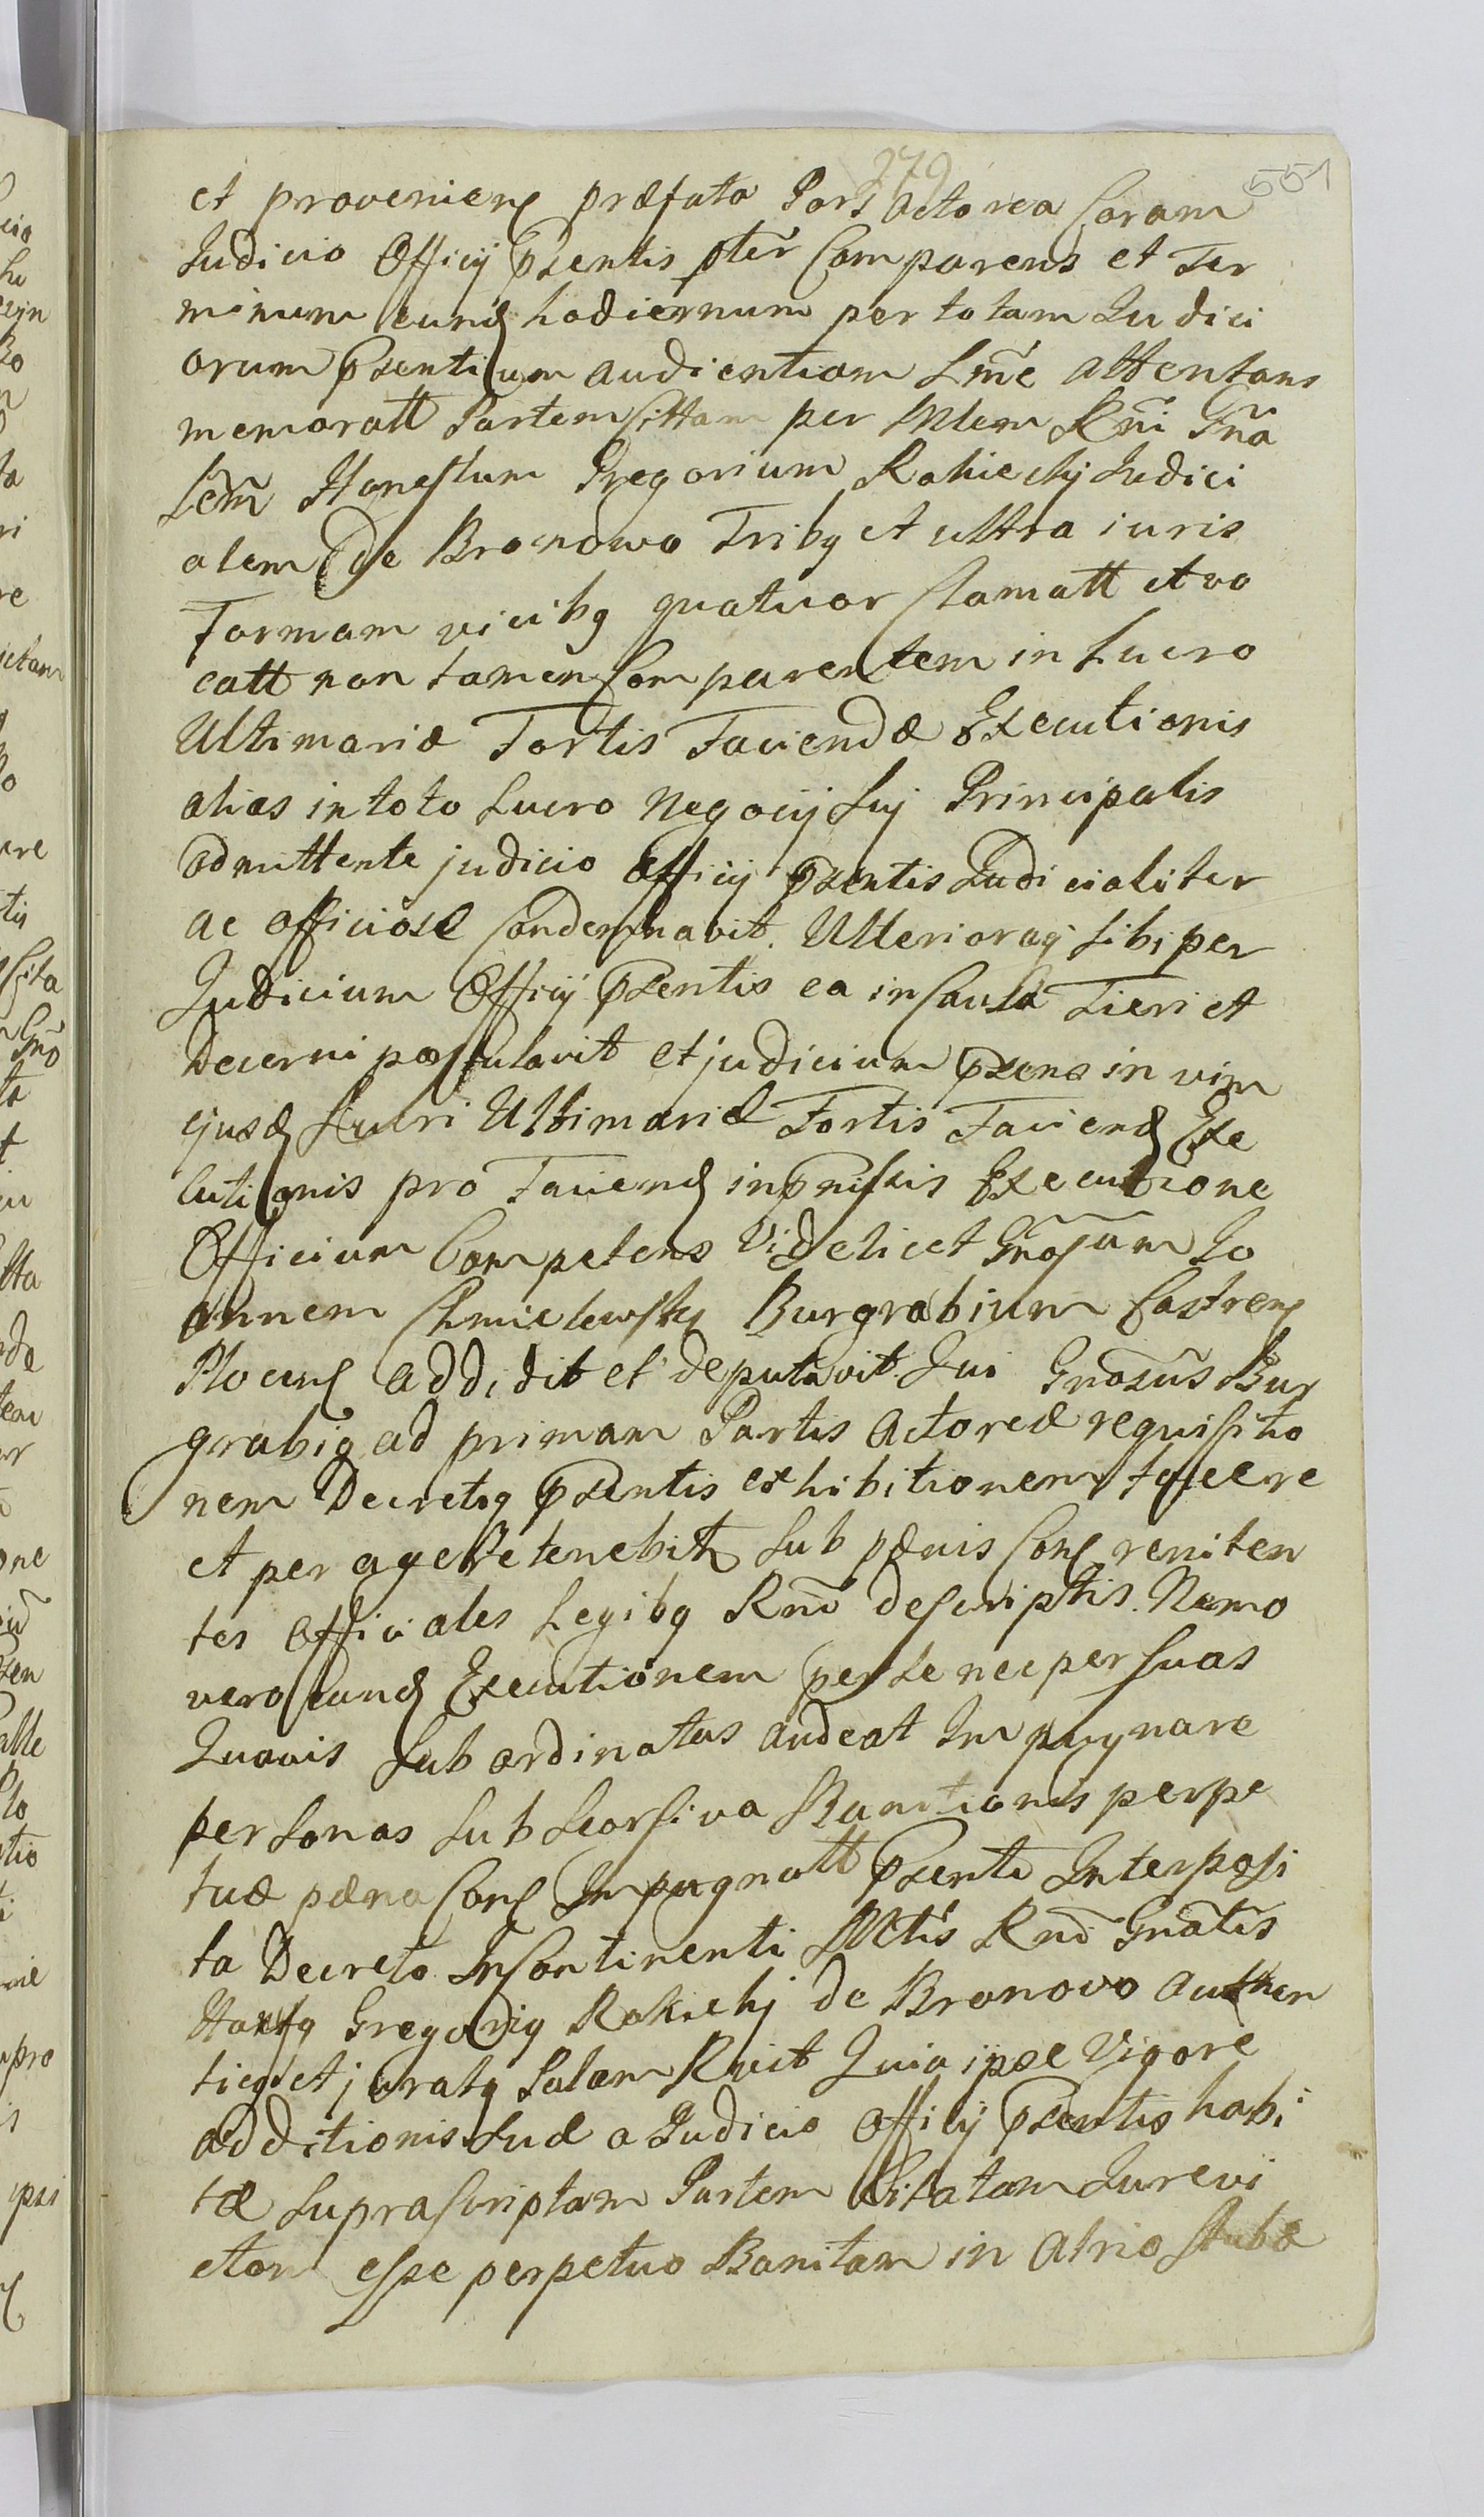 279
551
et proveniens præfata Pars Actorea Coram
Judicio Officij Pzentis pter Comparens et Ter
minum eund hodiernum per totam Judici
orum Pzentium audientiam Lme attentans
memoratt Partem Cittam per Mlem Rni Gna
lem Honestum Gregorium Rokicky Judici
alem de Bronowo Tribg et ultra iuris
Formam vicibg quatuor Clamatt et vo
catt non tamen Comparentem in Lucro
Ultimariæ Fortis Faciendæ Executionis
alias in toto Lucro Negocij Suj Principalis
admittente judicio Officij Pzentis Judicialiter
ac officiose Condemnavit. Ulterioraq sibi per
Judicium Officij Pzentis ea in Causa Fieri et
Decerni postulavit et judicium Pzens in vim
ejusd Lucri Ultimariæ Fortis Faciend Exe
cutionis pro Faciend inpmissis Executione
Officium Competens Videlicet Gnosum Jo
annem Chmielewsky Burgrabium Castrens
Plocens addidit et deputavit. Qui Gnozus Bur
grabig ad primam Partis Actoreæ requisitio
nem Decretog Pzentis exhibitionem facere
et peragere tenebit sub pænis Cons reniten
tes Officiales Legibg Rni descriptis. Nemo
vero eund Executionem per se nec per suas
Quavis Subordinatas audeat Impugnare
personas sub seorsiva Banitionis perpe
tuæ pæna Cons Impugnatt Pzenti Interposi
to Decreto. Incontinenti Mtis Rni Gnatis
Hostg Gregorig Rokicky de Bronovo authen
ticg et juratg Palam Rcit Quia ipse Vigore
additionis suæ a Judicio Officij Pzentis habi
tæ Suprascriptam Partem Citatam Jurevi
ctam esse perpetuo Banitam in Atrio Stubæ